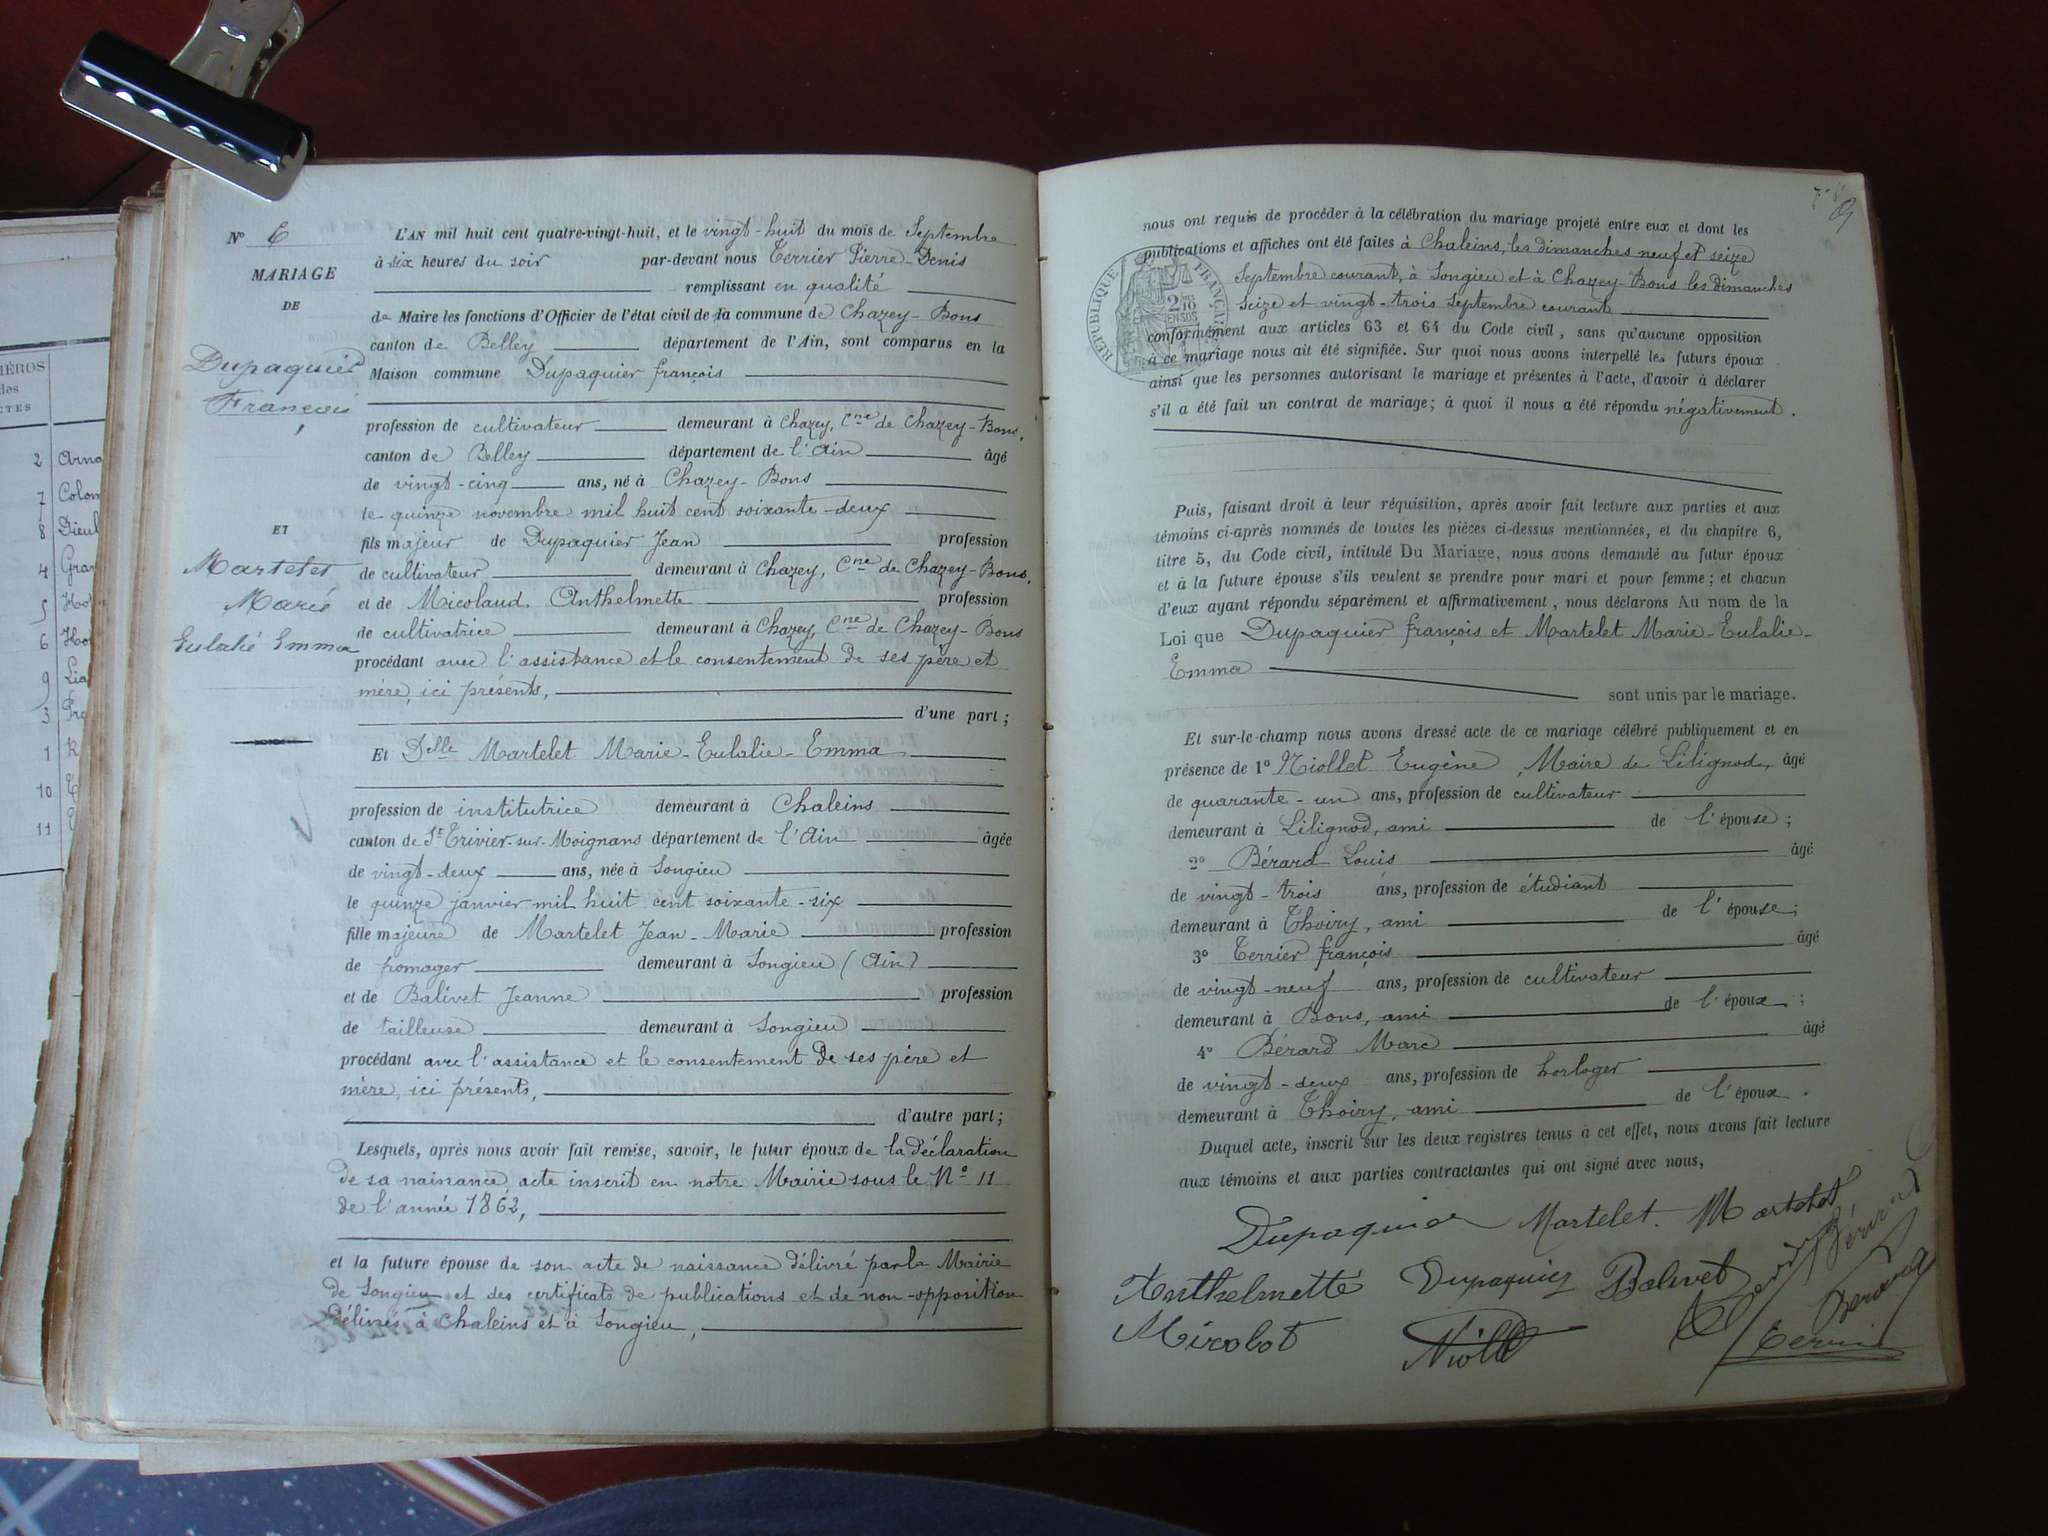 MÉROS
des
CTES
2 Arna
7 Colom
8 Dieul
4 Gran
5 Ho
6 Ho
9 Lia
3 Fra
1 K
10
11
N° 6
MARIAGE
DE
Dupaquier
François
ET
Martelet
Marie
Eulalie Emma
L'AN mil huit cent quatre-vingt-huit, et le vingt-huit du mois de Septembre
à six heures du soir par-devant nous Terrier Pierre-Denis
remplissant en qualité
de Maire les fonctions d'Officier de l'état civil de la commune de Chazey-Bons
canton de Belley département de l'Ain, sont comparus en la
Maison commune Dupaquier françois
profession de cultivateur demeurant à Chazey, Cne de Chazey-Bons,
canton de Belley département de l'Ain âgé
de vingt-cinq ans, né à Chazey-Bons
le quinze novembre mil huit cent soixante-deux
fils majeur de Dupaquier Jean profession
de cultivateur demeurant à Chazey, Cne de Chazey-Bons,
et de Micolaud Anthelmette profession
de cultivatrice demeurant à Chazey, Cne de Chazey-Bons
procédant avec l'assistance et le consentement de ses père et
mère, ici présents,
d'une part ;
Et Delle Martelet Marie-Eulalie-Emma
profession de institutrice demeurant à Chaleins
canton de St Trivier-sur-Moignans département de l'Ain âgée
de vingt-deux ans, née à Songieu
le quinze janvier mil huit cent soixante-six
fille majeure de Martelet Jean-Marie profession
de fromager demeurant à Songieu (Ain)
et de Balivet Jeanne profession
de tailleuse demeurant à Songieu
procédant avec l'assistance et le consentement de ses père et
mère, ici présents,
d'autre part ;
Lesquels, après nous avoir fait remise, savoir, le futur époux de la déclaration
de sa naissance, acte inscrit en notre Mairie sous le N° 11
de l'année 1862,
et la future épouse de son acte de naissance délivré par la Mairie
de Songieu et des certificats de publications et de non-opposition
délivrés à Chaleins et à Songieu,
nous ont requis de procéder à la célébration du mariage projeté entre eux et dont les
publications et affiches ont été faites à Chaleins, les dimanches neuf et seize
Septembre courant, à Songieu et à Chazey-Bons les dimanches
seize et vingt-trois Septembre courant
RÉPUBLIQUE FRANÇAISE
conformément aux articles 63 et 64 du Code civil, sans qu'aucune opposition
à ce mariage nous ait été signifiée. Sur quoi nous avons interpellé les futurs époux
ainsi que les personnes autorisant le mariage et présentes à l'acte, d'avoir à déclarer
s'il a été fait un contrat de mariage ; à quoi il nous a été répondu négativement.
Puis, faisant droit à leur réquisition, après avoir fait lecture aux parties et aux
témoins ci-après nommés de toutes les pièces ci-dessus mentionnées, et du chapitre 6,
titre 5, du Code civil, intitulé Du Mariage, nous avons demandé au futur époux
et à la future épouse s'ils veulent se prendre pour mari et pour femme ; et chacun
d'eux ayant répondu séparément et affirmativement, nous déclarons Au nom de la
Loi que Dupaquier françois et Martelet Marie-Eulalie-
Emma
sont unis par le mariage.
Et sur-le-champ nous avons dressé acte de ce mariage célébré publiquement et en
présence de 1° Niollet Eugène, Maire de Lilignod, âgé
de quarante-un ans, profession de cultivateur
demeurant à Lilignod, ami de l'épouse ;
2° Bérard Louis âgé
de vingt-trois ans, profession de étudiant
demeurant à Thoiry, ami de l'épouse ;
3° Terrier françois âgé
de vingt-neuf ans, profession de cultivateur
demeurant à Bons, ami de l'époux ;
4° Bérard Marc âgé
de vingt-deux ans, profession de horloger
demeurant à Thoiry, ami de l'époux.
Duquel acte, inscrit sur les deux registres tenus à cet effet, nous avons fait lecture
aux témoins et aux parties contractantes qui ont signé avec nous,
Dupaquier Martelet. Martelet
Anthelmette Dupaquier Balivet